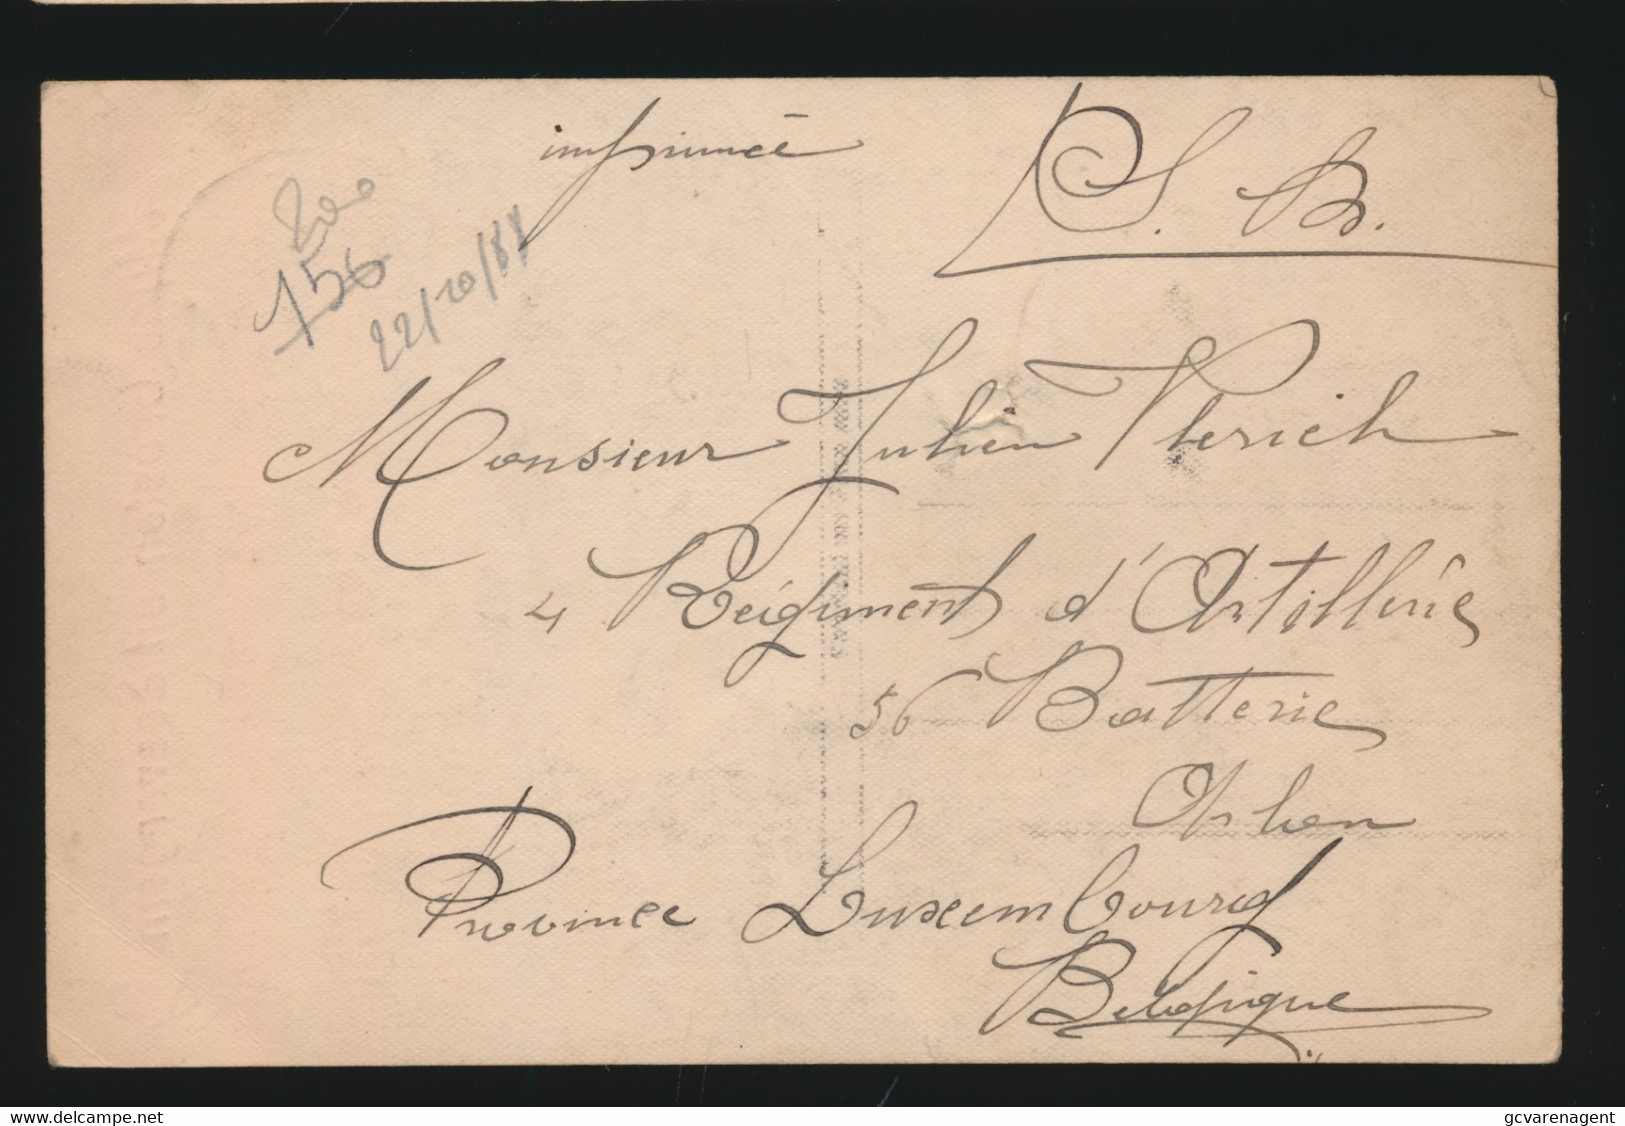 imprimée
S. B.
150
22/10/87
Monsieur Julien Flerich
4 Reigiment d'Artillerie
56 Batterie
Arlon
Province Luxembourg
Belgique
www.delcampe.net
gcvarenagent